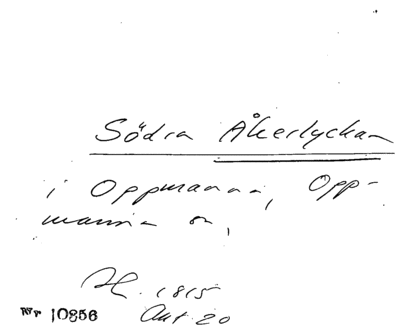 Södra Åkerlyckan
i Oppmanna, Opp-
manna sn,
1815
Akt 20
Nr 10856